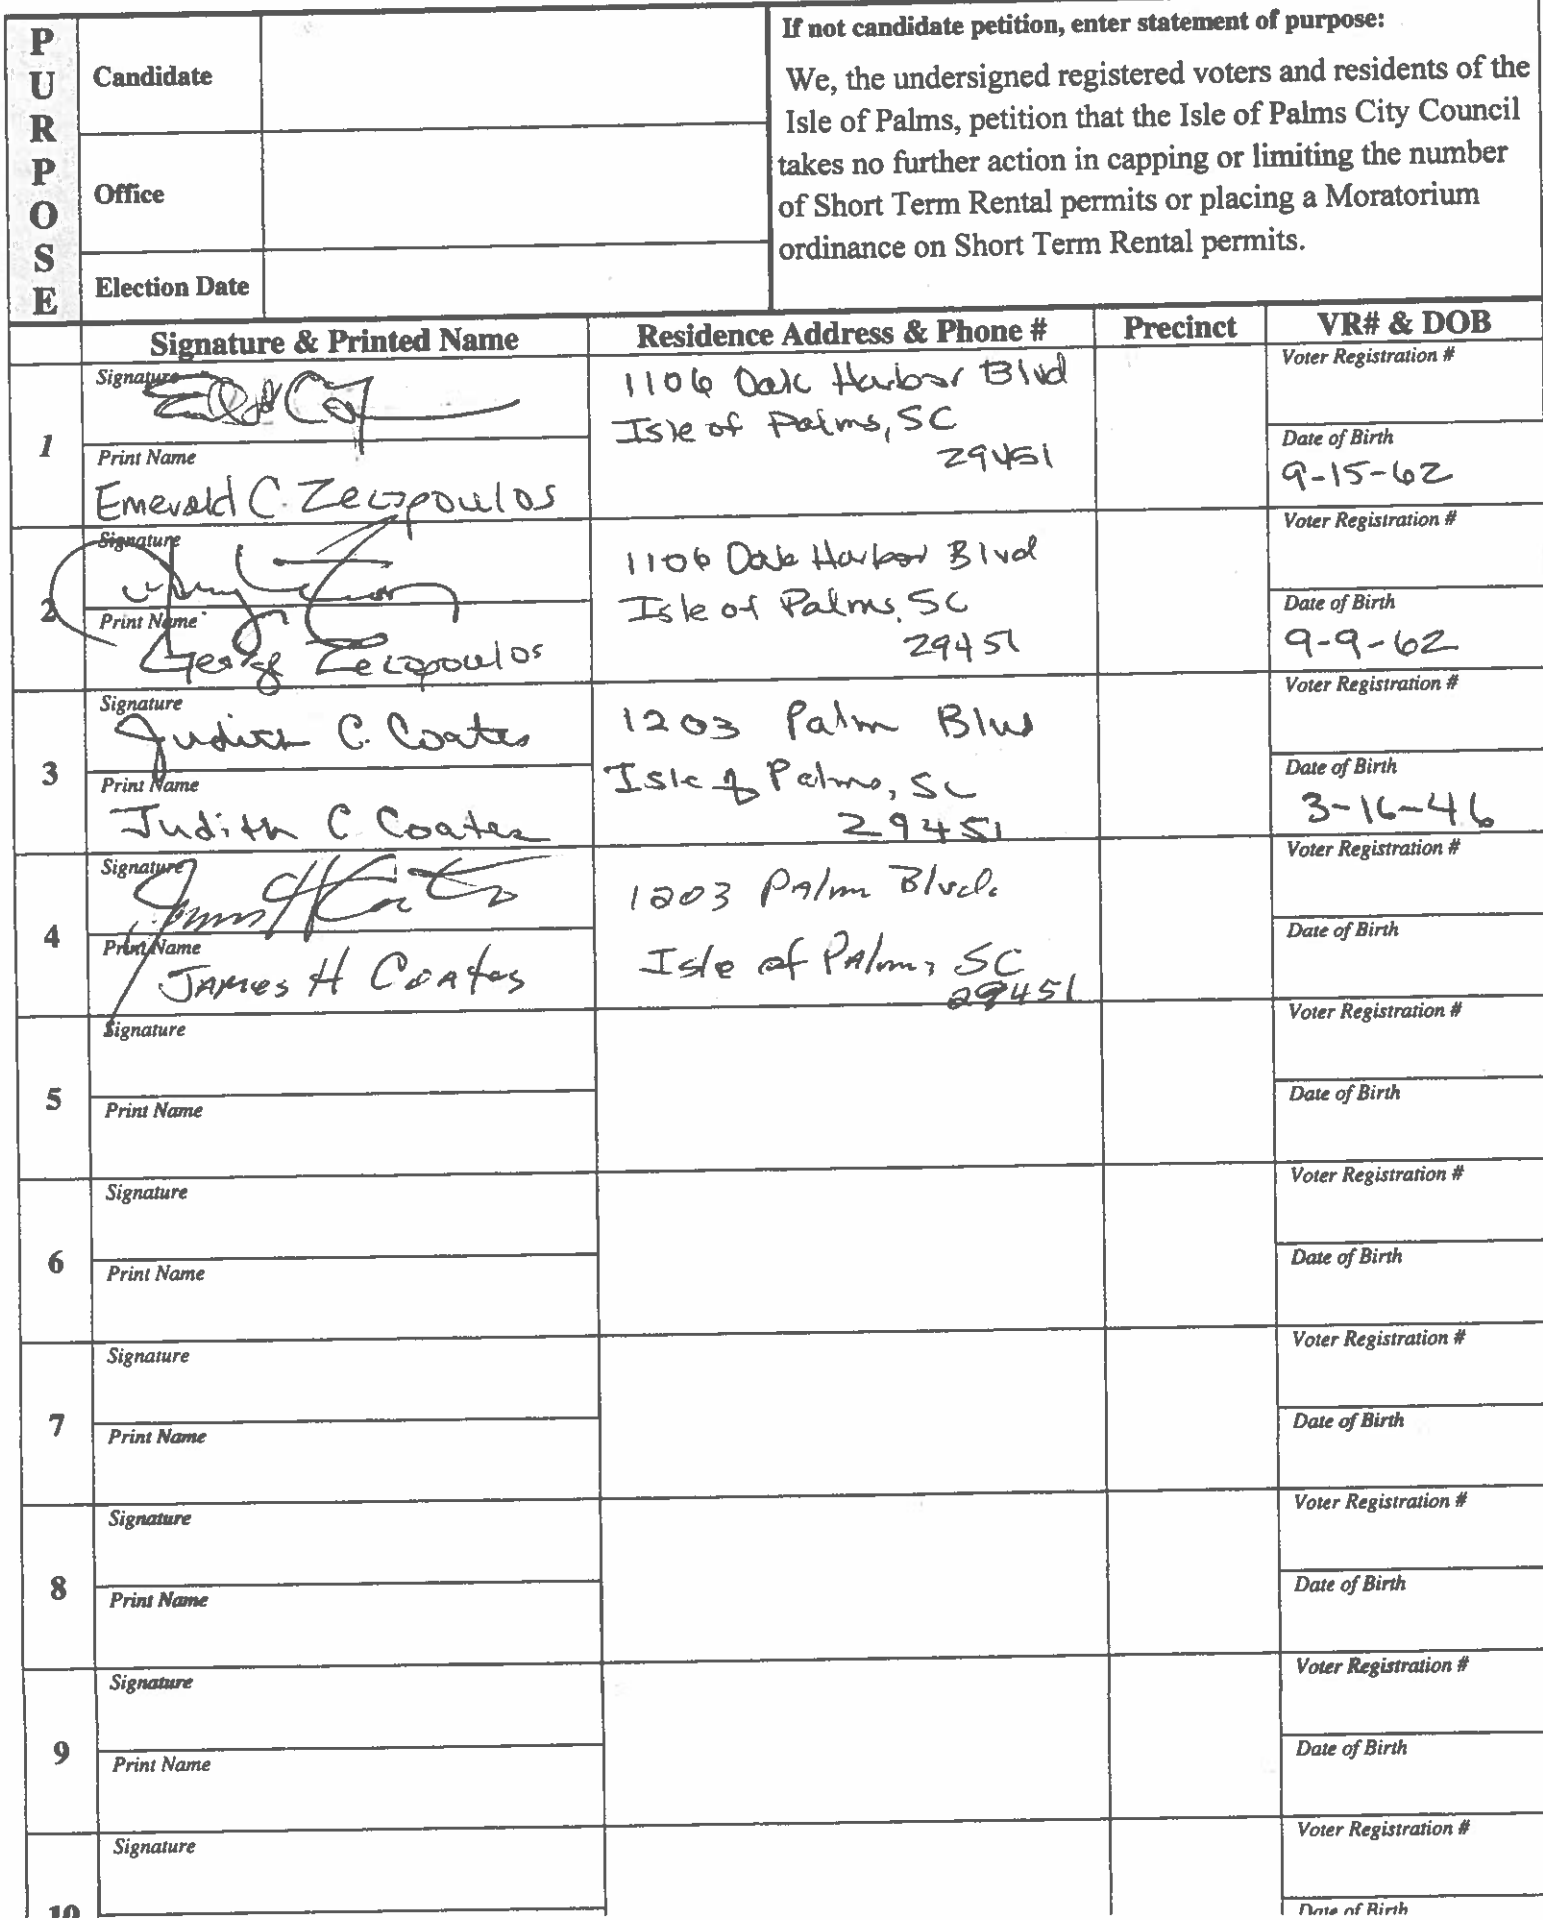 PURPOSE
Candidate
Office
Election Date
If not candidate petition, enter statement of purpose:
We, the undersigned registered voters and residents of the
Isle of Palms, petition that the Isle of Palms City Council
takes no further action in capping or limiting the number
of Short Term Rental permits or placing a Moratorium
ordinance on Short Term Rental permits.
Signature & Printed Name
Residence Address & Phone #
Precinct
VR# & DOB
1
Signature
Print Name
Emerald C. Zecopoulos
1106 Oak Harbor Blvd
Isle of Palms, SC
29451
Voter Registration #
Date of Birth
9-15-62
2
Signature
Print Name
George Zecopoulos
1106 Oak Harbor Blvd
Isle of Palms, SC
29451
Voter Registration #
Date of Birth
9-9-62
3
Signature
Judith C. Coates
Print Name
Judith C Coates
1203 Palm Blvd
Isle of Palms, SC
29451
Voter Registration #
Date of Birth
3-16-46
4
Signature
James H Coates
Print Name
James H Coates
1203 Palm Blvd.
Isle of Palms, SC
29451
Voter Registration #
Date of Birth
5
Signature
Print Name
Voter Registration #
Date of Birth
6
Signature
Print Name
Voter Registration #
Date of Birth
7
Signature
Print Name
Voter Registration #
Date of Birth
8
Signature
Print Name
Voter Registration #
Date of Birth
9
Signature
Print Name
Voter Registration #
Date of Birth
10
Signature
Voter Registration #
Date of Birth